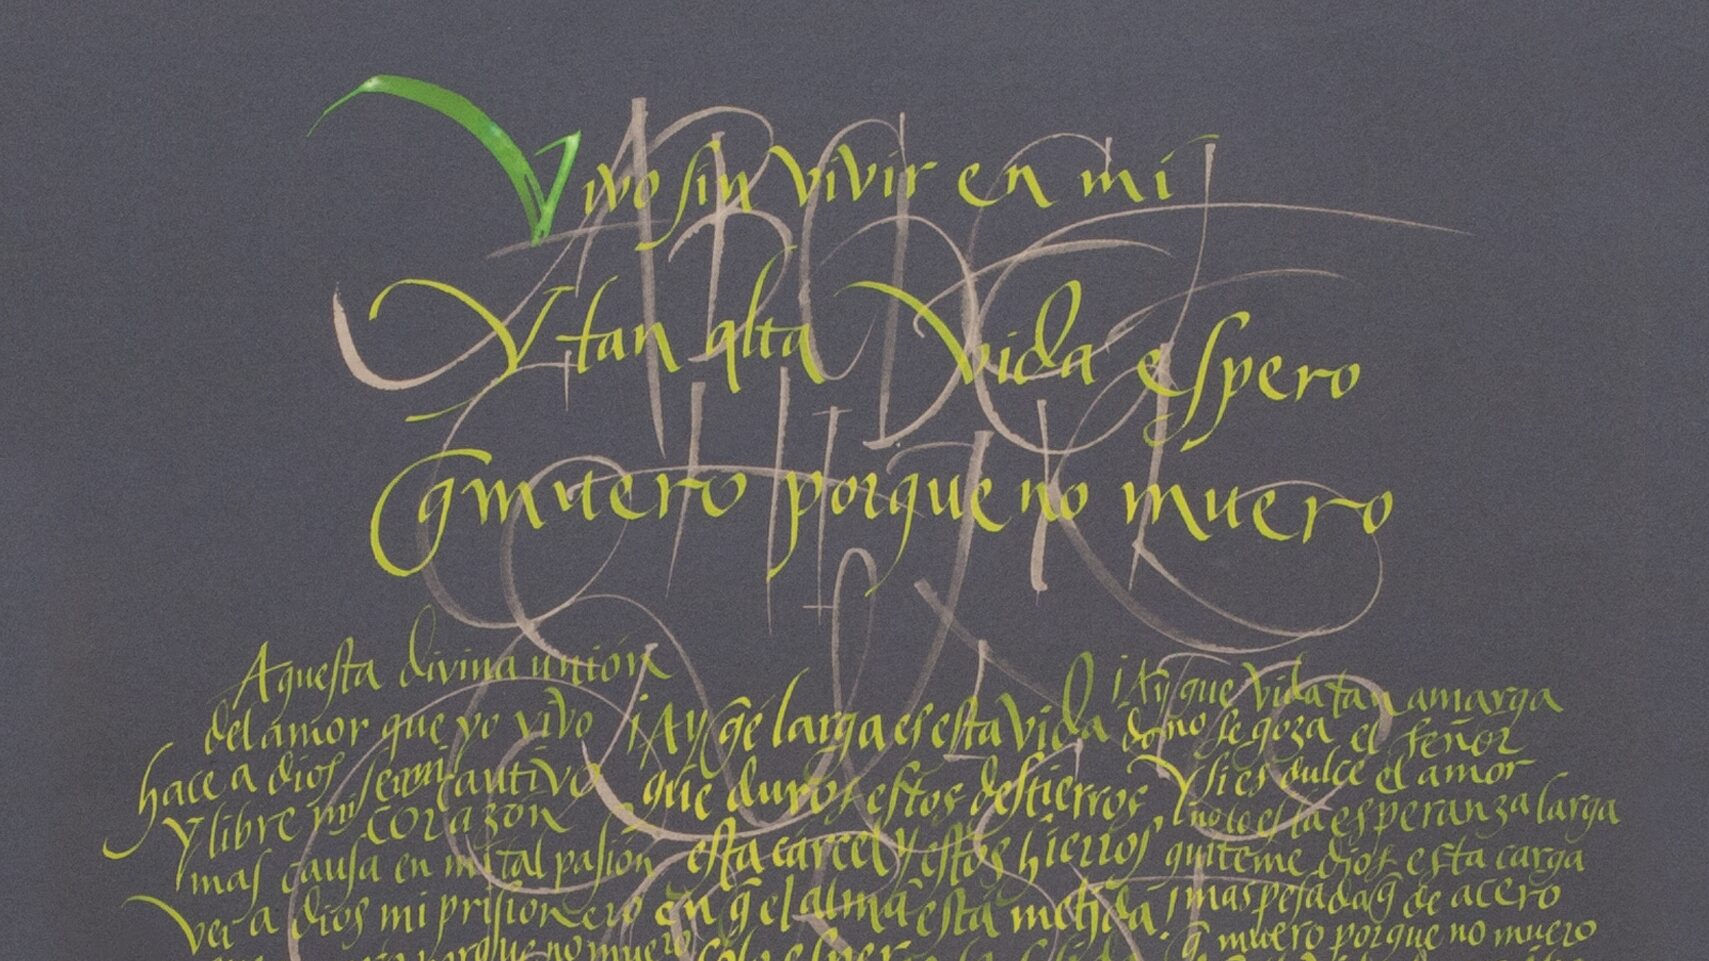 Vivo sin vivir en mi
Y tan alta vida espero
q̃ muero porque no muero
Aquesta divina unión
del amor que yo vivo
hace a dios ser mi cautivo
y libre mi corazón
mas causa en mi tal pasión
ver a dios mi prisionero
porque no muero
¡Ay q̃ larga es esta vida
que duros estos destierros
esta cárcel y estos hierros
en q̃ el alma está metida!
¡Ay que vida tan amarga
do no se goza el señor
Y si es dulce el amor
no lo es la esperanza larga
quiteme dios esta carga
mas pesada q̃ de acero
q̃ muero porque no muero